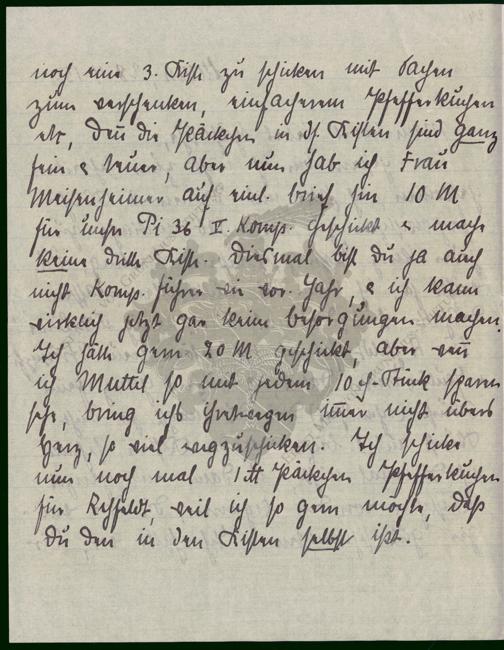 noch eine 3. Kiste zu schicken mit Sachen
zum verschenken, einfacherem Pfefferkuchen
etc, deñ die Päckchen in d. Kisten sind ganz
fein & teuer, aber nun hab ich Frau
Meisenheimer auf einl. Brief hin 10 M
für unsre Pi 36 II. Komp. geschickt & mache
keine dritte Kiste. Diesmal bist Du ja auch
nicht Komp. führer wie vor. Jahr, & ich kann
wirklich jetzt gar keine besorgungen machen.
Ich hätte gern 20 M geschickt, aber weñ
ich Muttel so mit jedem 10 ch-Stück sparen
sehe, bring ichs ihretwegen im̃er nicht übers
Herz, so viel wegzuschicken. Ich schicke
nun noch mal 1 ℔ Päckchen Pfefferkuchen
für, weil ich so gern möchte, daß
Du den in den Kisten selbst ißt.